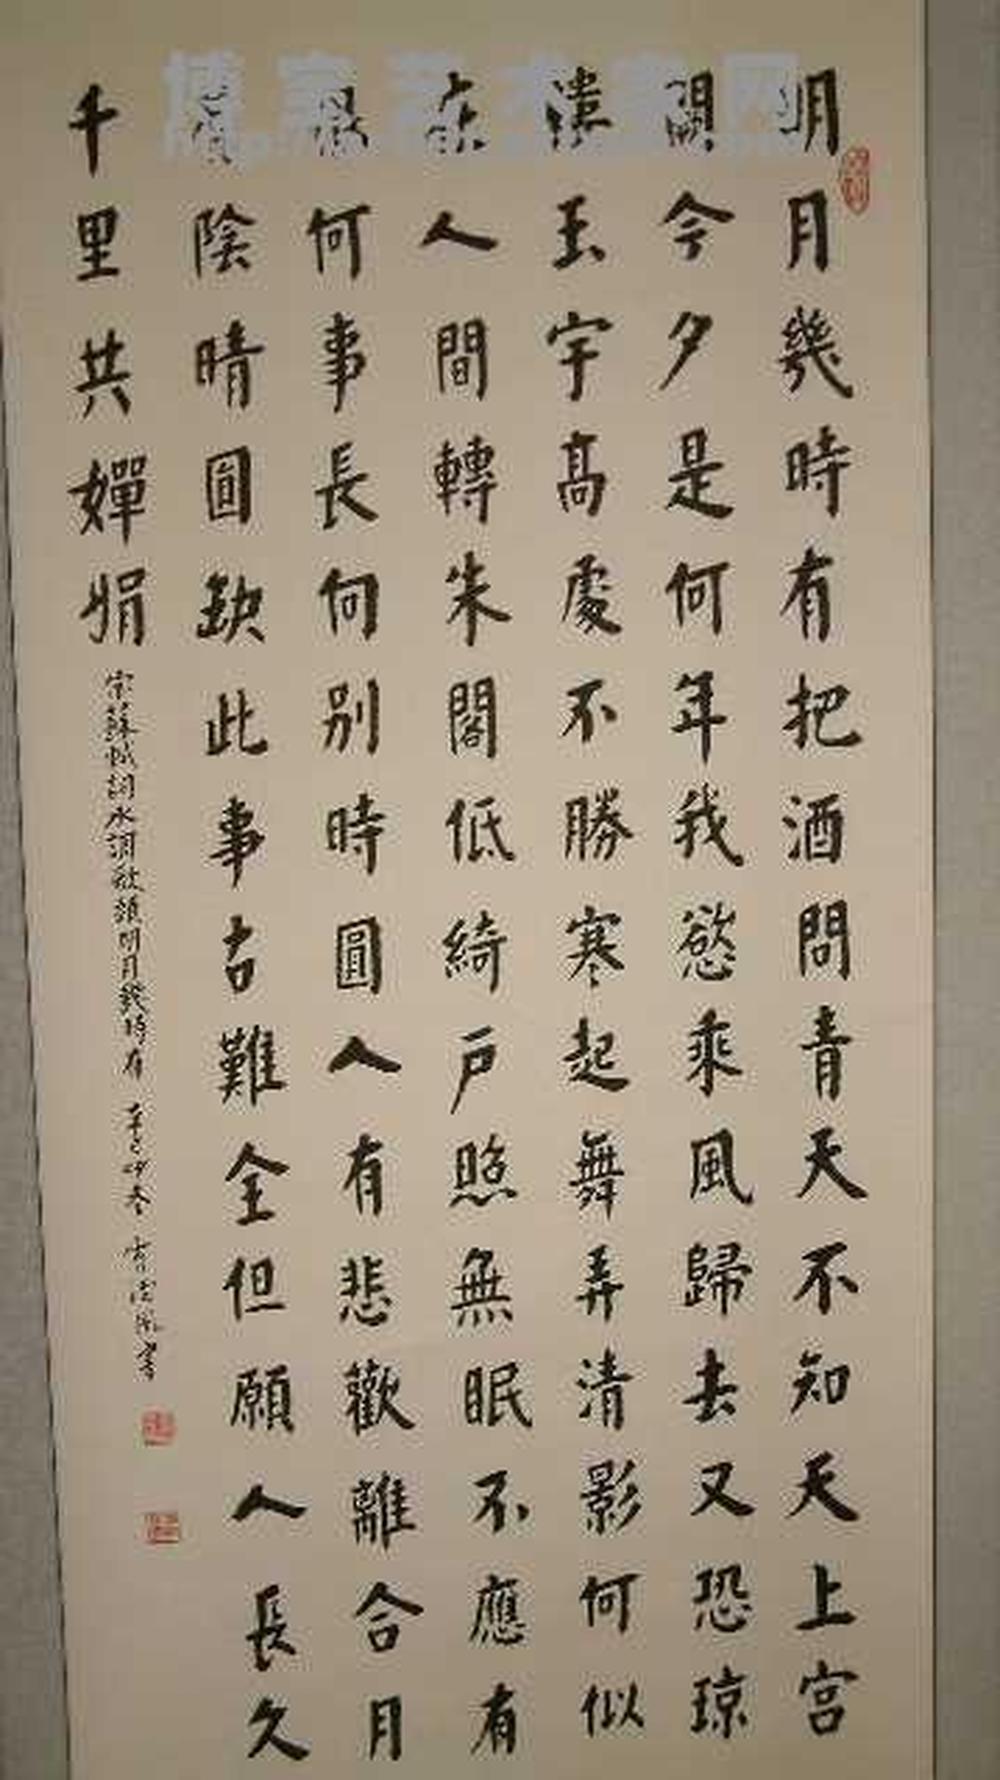 明月幾時有把酒問青天不知天上宫
闕今夕是何年我慾乘風歸去又恐琼
樓玉宇高處不勝寒起舞弄清影何似
在人間轉朱閣低綺户照無眠不應有
恨何事長向别時圓人有悲歡離合月
有陰晴圓缺此事古難全但願人長久
千里共嬋娟
宗蘇軾詞水調歌頭明月幾時有